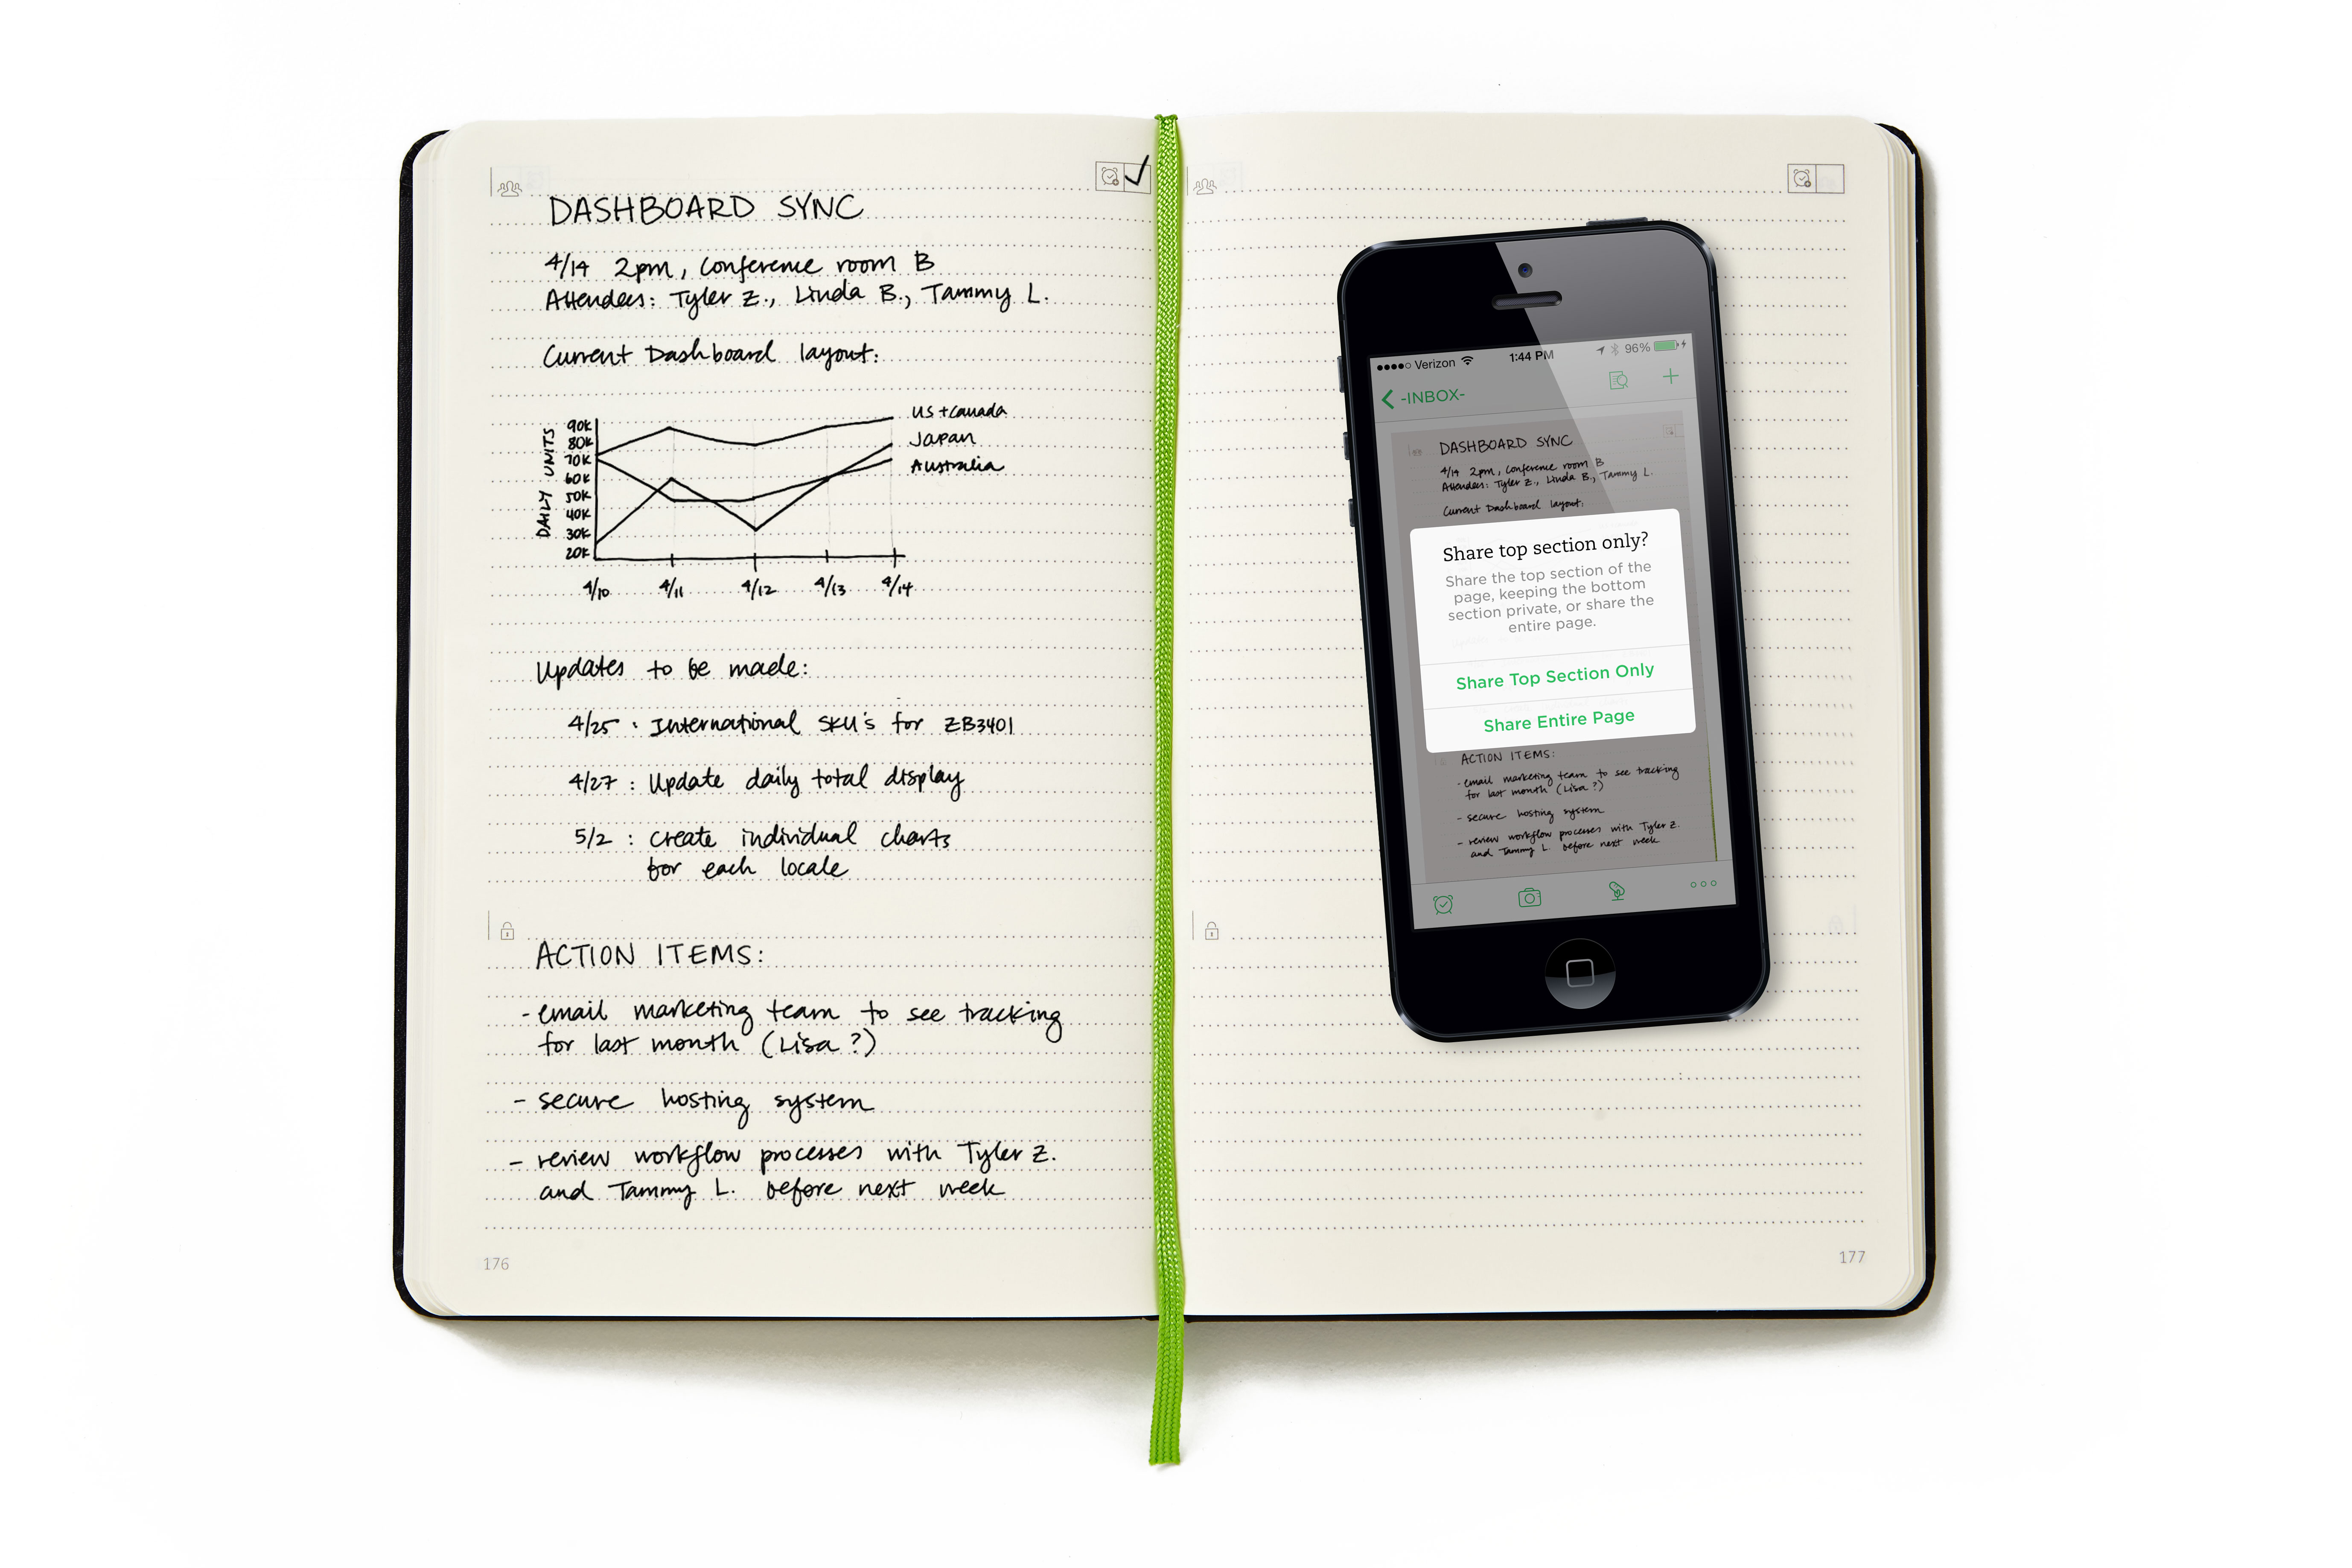 DASHBOARD SYNC
4/14 2pm, Conference room B
Attendees: Tyler Z., Linda B., Tammy L.
Current Dashboard layout:
DAILY UNITS
90K
80K
70K
60K
50K
40K
30K
20K
US + Canada
Japan
Australia
4/10 4/11 4/12 4/13 4/14
Updates to be made:
4/25 : International SKU's for ZB3401
4/27 : Update daily total display
5/2 : Create individual charts
for each locale
ACTION ITEMS:
- email marketing team to see tracking
for last month (Lisa ?)
- secure hosting system
- review workflow processes with Tyler Z.
and Tammy L. before next week
176
Verizon 1:44 PM 96%
-INBOX-
DASHBOARD SYNC
4/14 2pm, Conference room B
Attendees: Tyler Z., Linda B., Tammy L.
Current Dashboard layout:
Share top section only?
Share the top section of the
page, keeping the bottom
section private, or share the
entire page.
Share Top Section Only
Share Entire Page
ACTION ITEMS:
- email marketing team to see tracking
for last month (Lisa ?)
- secure hosting system
- review workflow processes with Tyler Z.
and Tammy L. before next week
177